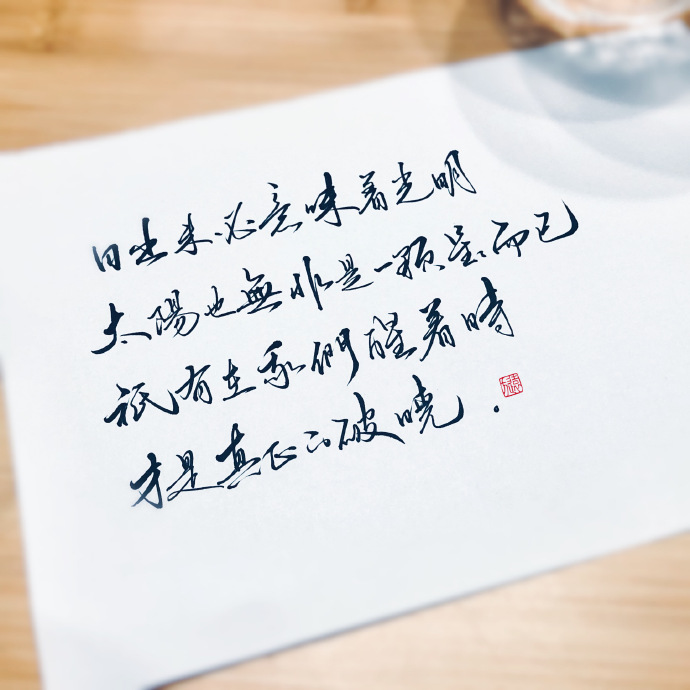 日出未必意味着光明
太陽也無非是一顆星而已
祇有在我們醒着時
才是真正的破曉.